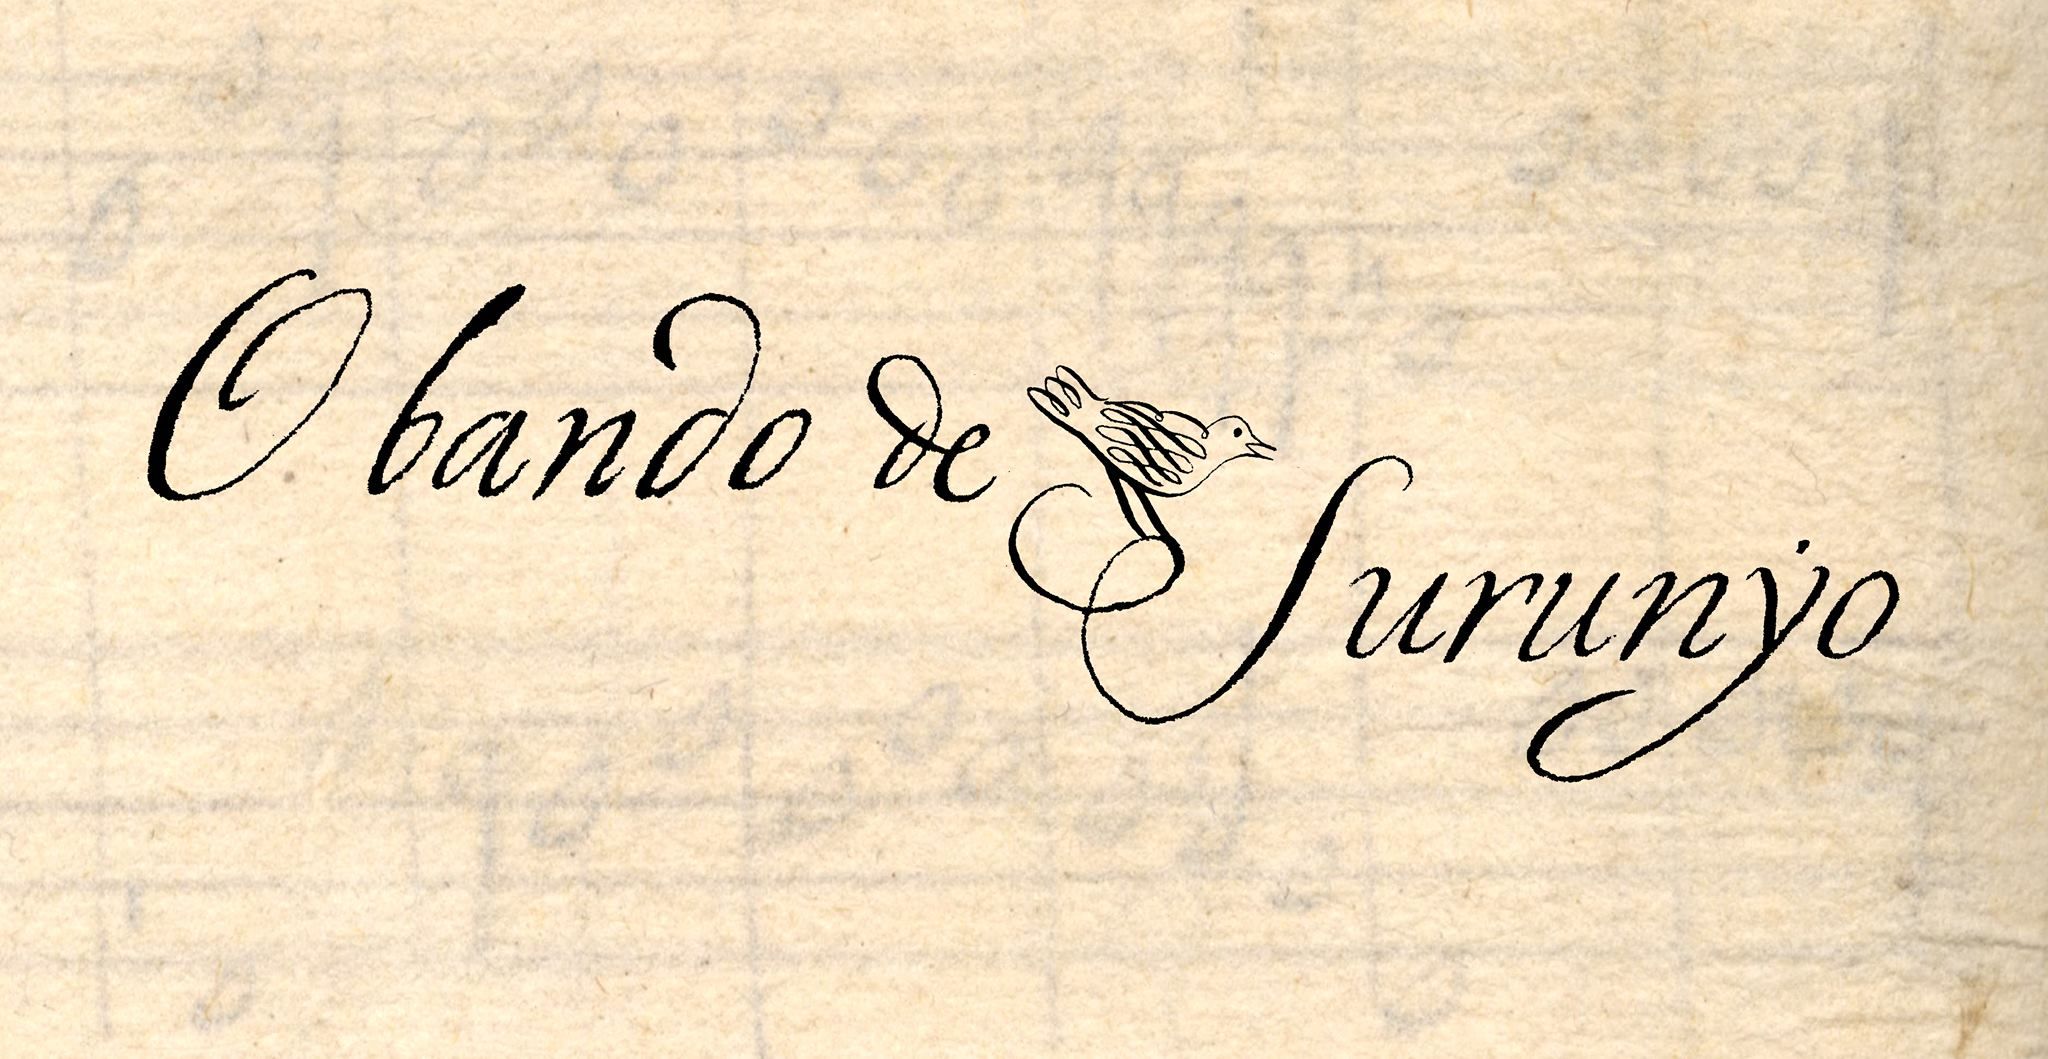 O bando de
Surunyo